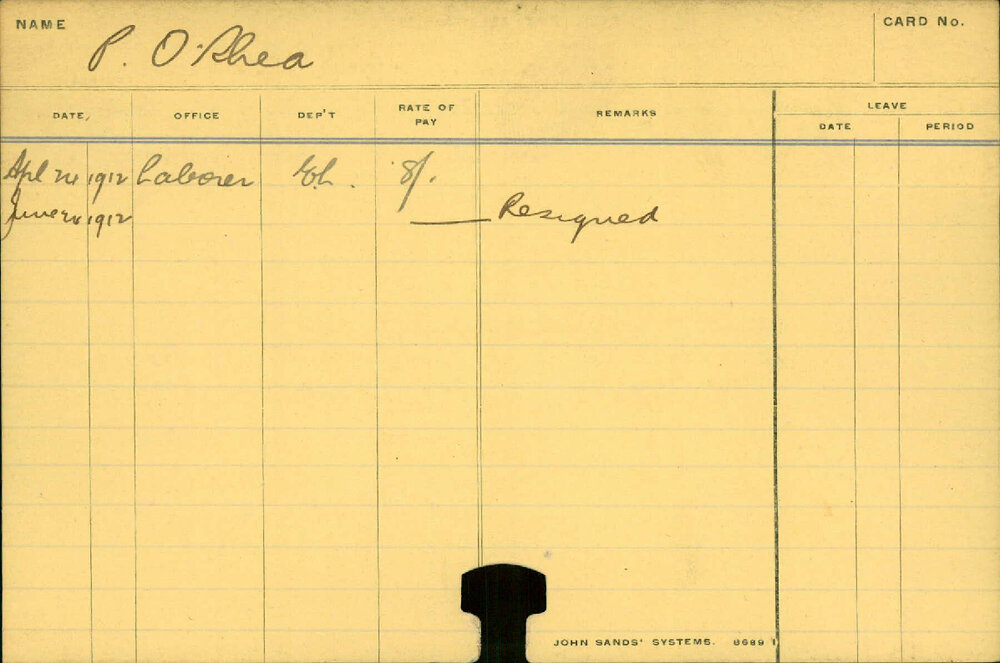 NAME P. O'Rhea CARD No.
DATE, OFFICE DEP'T RATE OF PAY REMARKS LEAVE
DATE PERIOD
Apl 24 1912 Laborer 8/.
June 1912 Resigned
JOHN SANDS' SYSTEMS. 8689